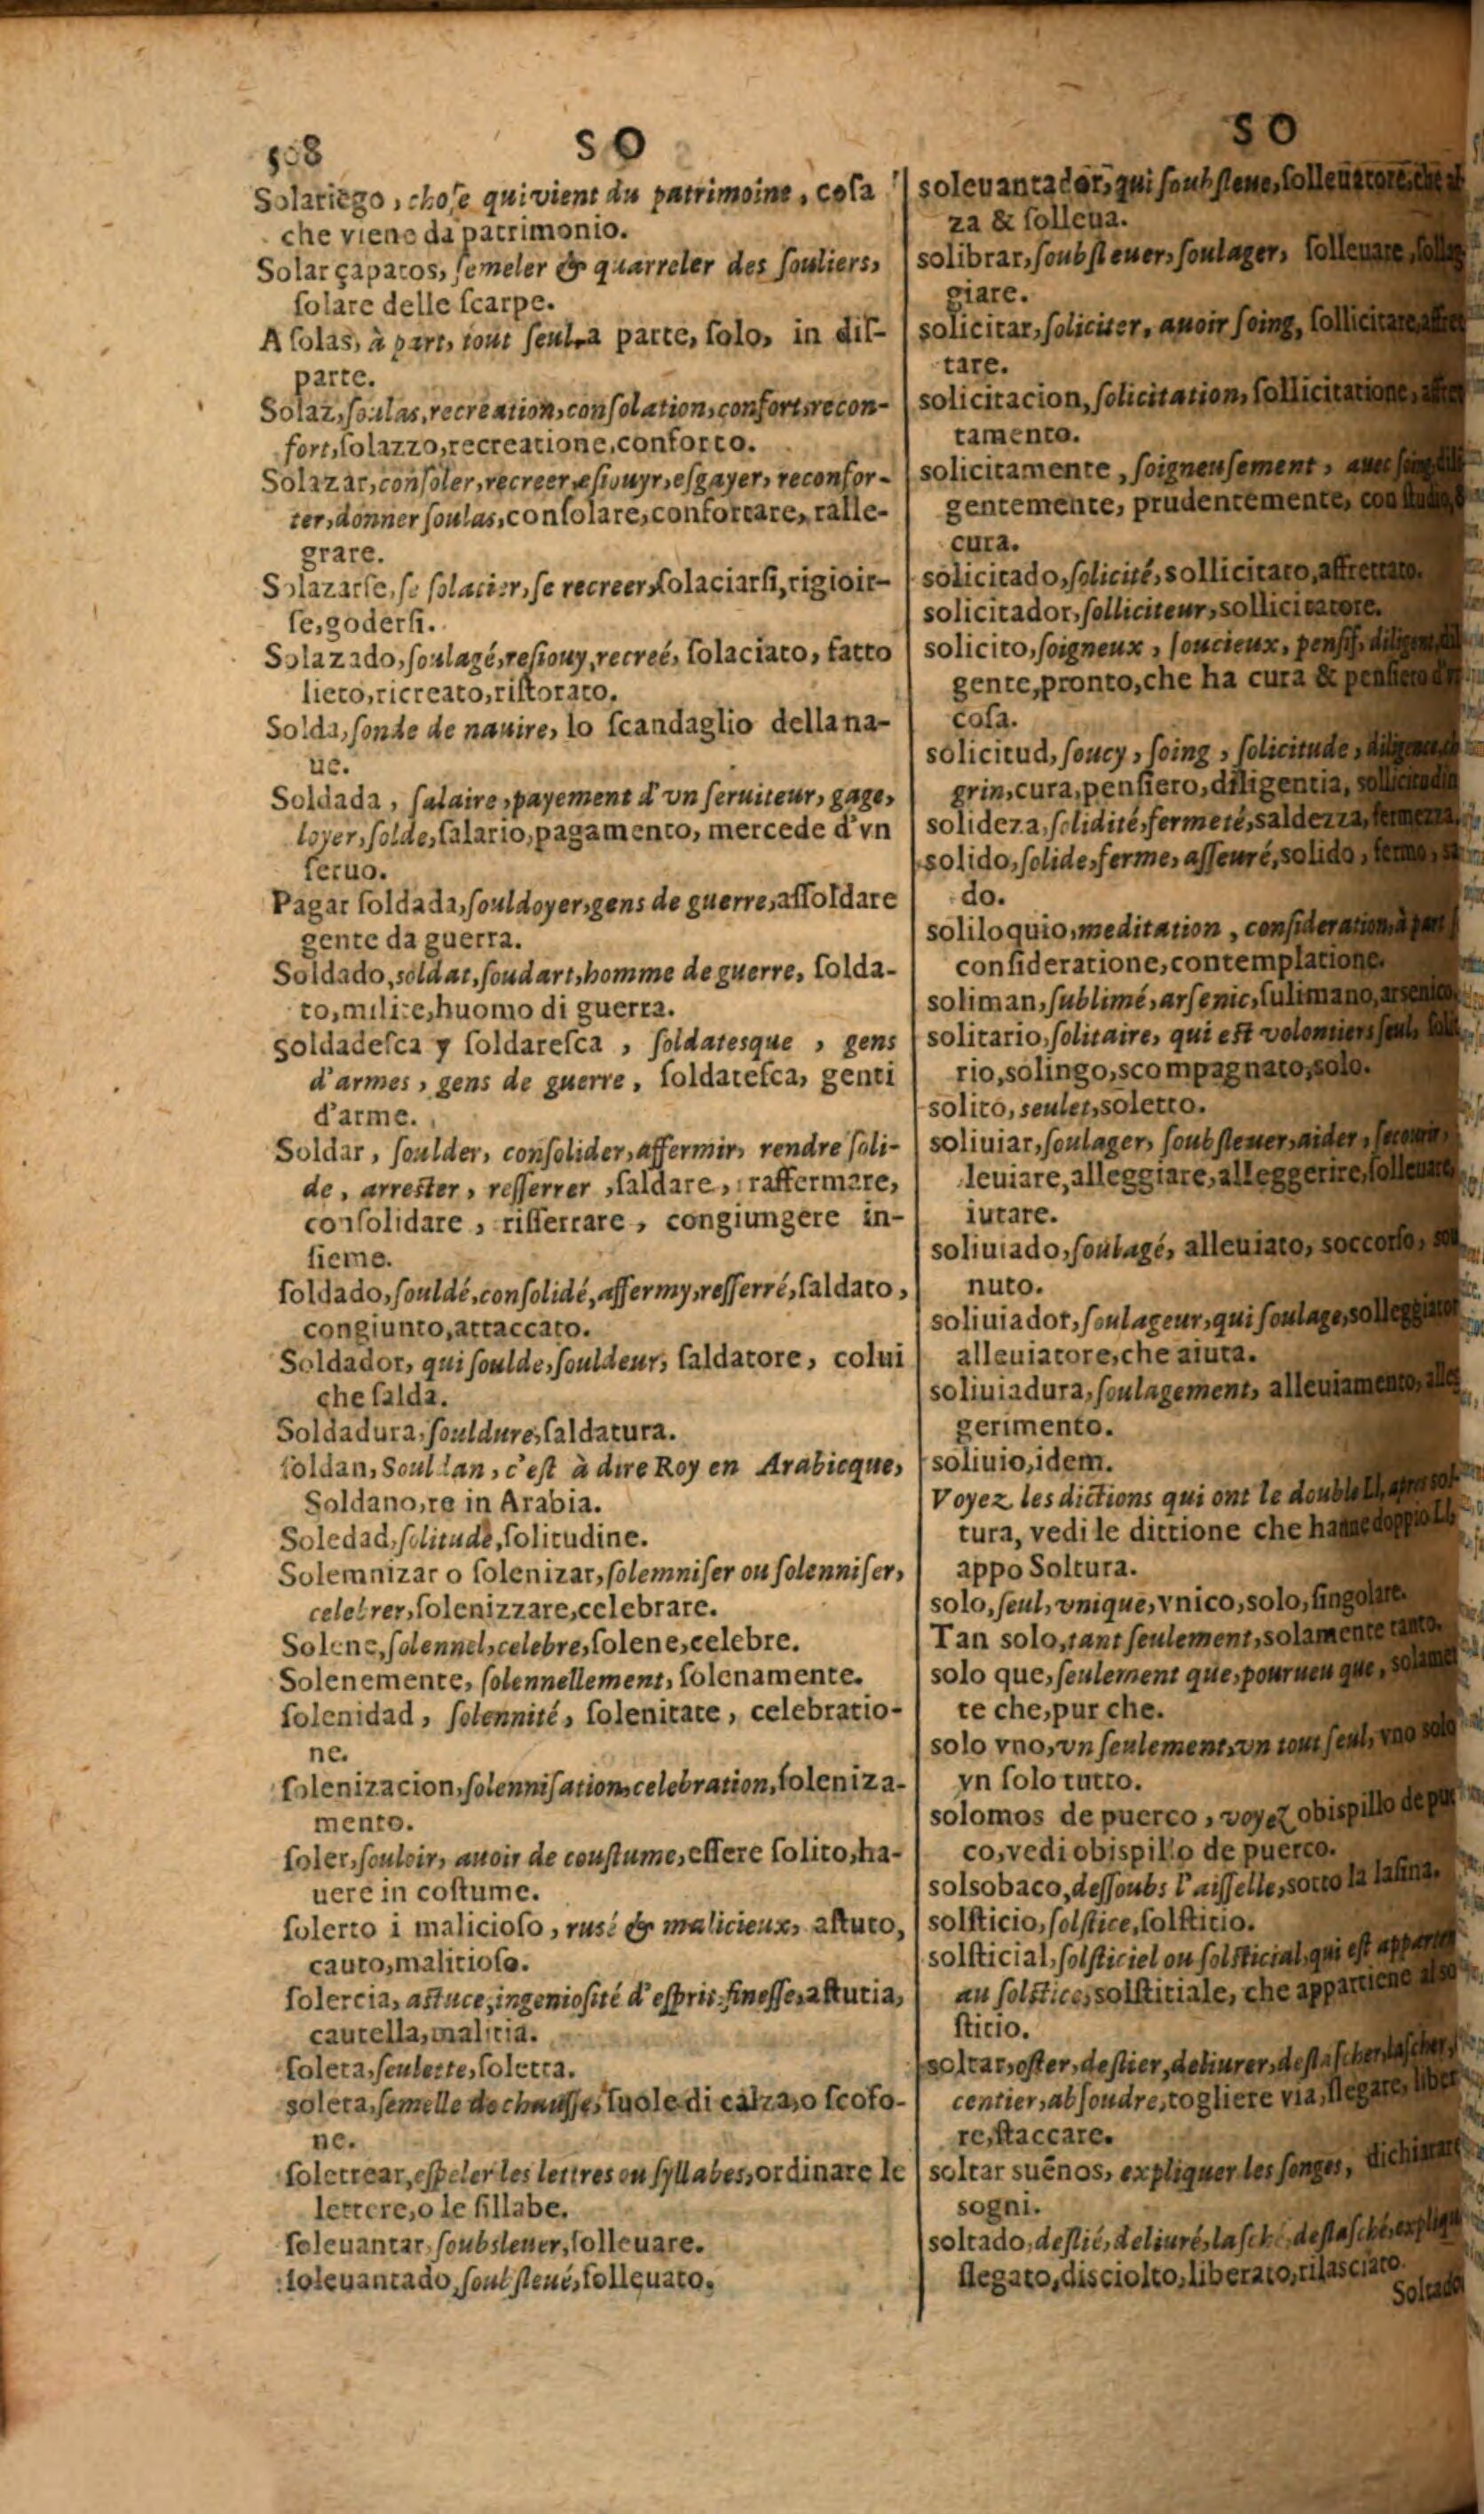 508 SO
Solariego, chose qui vient du patrimoine, cosa
che viene da patrimonio.
Solar çapatos, semeler & quarreler des souliers,
solare delle scarpe.
A solas, à part, tout seul, a parte, solo, in dis-
parte.
Solaz, soulas, recreation, consolation, confort, recon-
fort, solazzo, recreatione, conforto.
Solazar, consoler, recreer, esiouyr, esgayer, reconfor-
ter, donner soulas, consolare, confortare, ralle-
grare.
Solazarse, se solacier, se recreer, solaciarsi, rigioir-
se, godersi.
Solazado, soulagé, resiouy, recreé, solaciato, fatto
lieto, ricreato, ristorato.
Solda, sonde de nauire, lo scandaglio della na-
ue.
Soldada, salaire, payement d'vn seruiteur, gage,
loyer, solde, salario, pagamento, mercede d'vn
seruo.
Pagar soldada, souldoyer, gens de guerre, assoldare
gente da guerra.
Soldado, soldat, soudart, homme de guerre, solda-
to, milite, huomo di guerra.
Soldadesca y soldaresca, soldatesque, gens
d'armes, gens de guerre, soldatesca, genti
d'arme.
Soldar, soulder, consolider, affermir, rendre soli-
de, arrester, resserrer, saldare, raffermare,
consolidare, risserrare, congiungere in-
sieme.
soldado, souldé, consolidé, affermy, resserré, saldato,
congiunto, attaccato.
Soldador, qui soulde, souldeur, saldatore, colui
che salda.
Soldadura, souldure, saldatura.
soldan, Souldan, c'est à dire Roy en Arabicque,
Soldano, re in Arabia.
Soledad, solitude, solitudine.
Solemnizar o solenizar, solemniser ou solenniser,
celebrer, solenizzare, celebrare.
Solene, solennel, celebre, solene, celebre.
Solenemente, solennellement, solenamente.
solenidad, solennité, solenitate, celebratio-
ne.
solenizacion, solennisation, celebration, soleniza-
mento.
soler, souloir, auoir de coustume, essere solito, ha-
uere in costume.
solerto i malicioso, rusé & malicieux, astuto,
cauto, malitioso.
solercia, astuce, ingeniosité d'esprit, finesse, astutia,
cautella, malitia.
soleta, seulette, soletta.
soleta, semelle de chausse, suole di calza, o scofo-
ne.
soletrear, espeler les lettres ou syllabes, ordinare le
lettere, o le sillabe.
soleuantar, soubsleuer, solleuare.
soleuantado, soubsleué, solleuato.
SO
soleuantador, qui soubsleue, solleuatore, che al
za & solleua.
solibrar, soubsleuer, soulager, solleuare, solleg
giare.
solicitar, soliciter, auoir soing, sollicitare, affret
tare.
solicitacion, solicitation, sollicitatione, affret
tamento.
solicitamente, soigneusement, auec soing, dili
gentemente, prudentemente, con studio, &
cura.
solicitado, solicité, sollicitato, affrettato.
solicitador, solliciteur, sollicitatore.
solicito, soigneux, soucieux, pensif, diligent, dil
gente, pronto, che ha cura & pensiero d'
cosa.
solicitud, soucy, soing, solicitude, diligence,
grin, cura, pensiero, diligentia, sollicitudin
solideza, solidité, fermeté, saldezza, fermezza,
solido, solide, ferme, asseuré, solido, fermo, sa
do.
soliloquio, meditation, consideration, à part
consideratione, contemplatione.
soliman, sublimé, arsenic, sulimano, arsenico,
solitario, solitaire, qui est volontiers seul, solit
rio, solingo, scompagnato, solo.
solito, seulet, soletto.
soliuiar, soulager, soubsleuer, aider, secourir,
leuiare, alleggiare, alleggerire, solleuare,
iutare.
soliuiado, soulagé, alleuiato, soccorso,
nuto.
soliuiador, soulageur, qui soulage, solleggiator
alleuiatore, che aiuta.
soliuiadura, soulagement, alleuiamento, alleg
gerimento.
soliuio, idem.
Voyez les dictions qui ont le double Ll, apres sol
tura, vedi le dittione che hanne doppio Ll,
appo Soltura.
solo, seul, vnique, vnico, solo, singolare.
Tan solo, tant seulement, solamente tanto.
solo que, seulement que, pourueu que, solamen
te che, pur che.
solo vno, vn seulement, vn tout seul, vno solo
vn solo tutto.
solomos de puerco, voyez obispillo de puer
co, vedi obispillo de puerco.
solsobaco, dessoubs l'aisselle, sotto la lasina.
solsticio, solstice, solstitio.
solsticial, solsticiel ou solsticial, qui est apparten
au solstice, solstitiale, che appartiene al so
stitio.
soltar, oster, deslier, deliurer, deslascher, lascher,
centier, absoudre, togliere via, slegare, liber
re, staccare.
soltar suēnos, expliquer les songes, dichiarare
sogni.
soltado, deslié, deliuré, lasché, deslasché, expliqu
slegato, disciolto, liberato, rilasciato.
Soltador